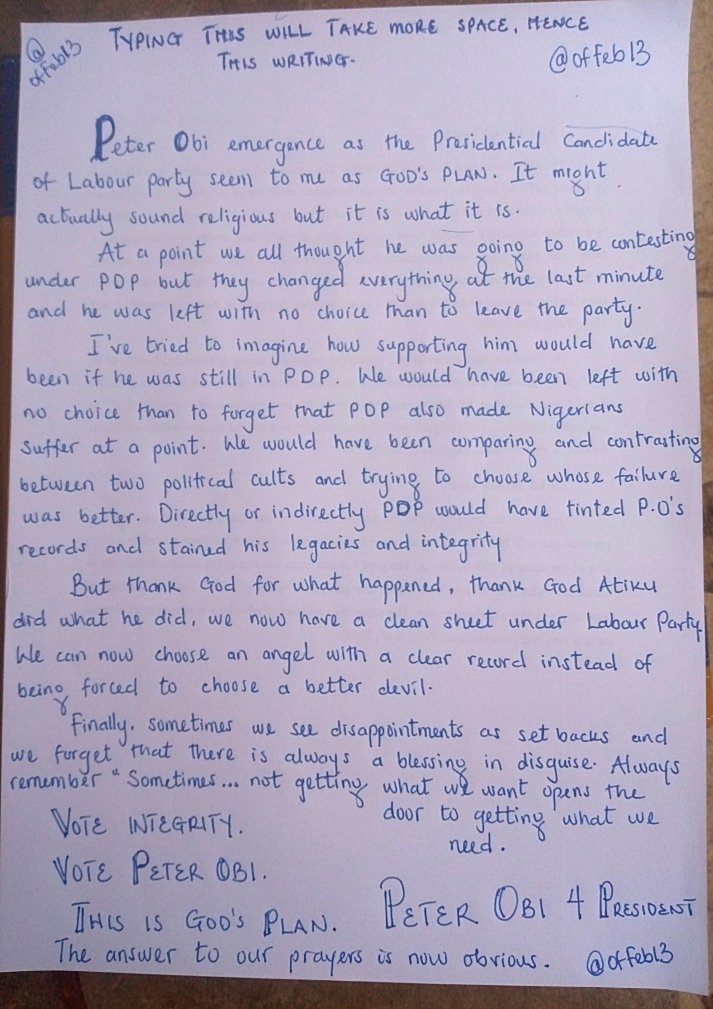 @
offeb13
TYPING THIS WILL TAKE MORE SPACE, HENCE
THIS WRITING.
@offeb13
Peter Obi emergence as the Presidential Candidate
of Labour party seem to me as GOD'S PLAN. It might
actually sound religious but it is what it is.
At a point we all thought he was going to be contesting
under PDP but they changed everything at the last minute
and he was left with no choice than to leave the party.
I've tried to imagine how supporting him would have
been if he was still in PDP. We would have been left with
no choice than to forget that PDP also made Nigerians
suffer at a point. We would have been comparing and contrasting
between two political cults and trying to choose whose failure
was better. Directly or indirectly PDP would have tinted P.O's
records and stained his legacies and integrity
But thank God for what happened, thank God Atiku
did what he did, we now have a clean sheet under Labour Party
We can now choose an angel with a clear record instead of
being forced to choose a better devil.
Finally, sometimes we see disappointments as set backs and
we forget that there is always a blessing in disguise. Always
remember "Sometimes... not getting what we want opens the
door to getting what we
need.
VOTE INTEGRITY.
VOTE PETER OBI.
THIS IS GOD'S PLAN.
PETER OBI 4 PRESIDENT
The answer to our prayers is now obvious.
@offeb13